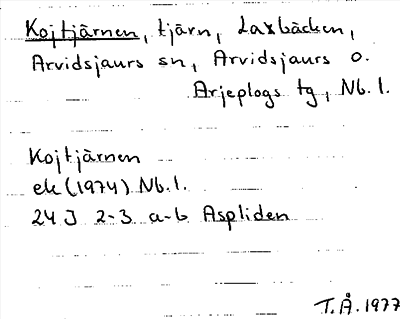 Kojtjärnen, tjärn, Laxbäcken,
Arvidsjaurs sn, Arvidsjaurs o.
Arjeplogs tg, Nb. l.
Kojtjärnen
ek (1974) Nb. l.
24 J 2-3 a-b Aspliden
T.Å. 1977